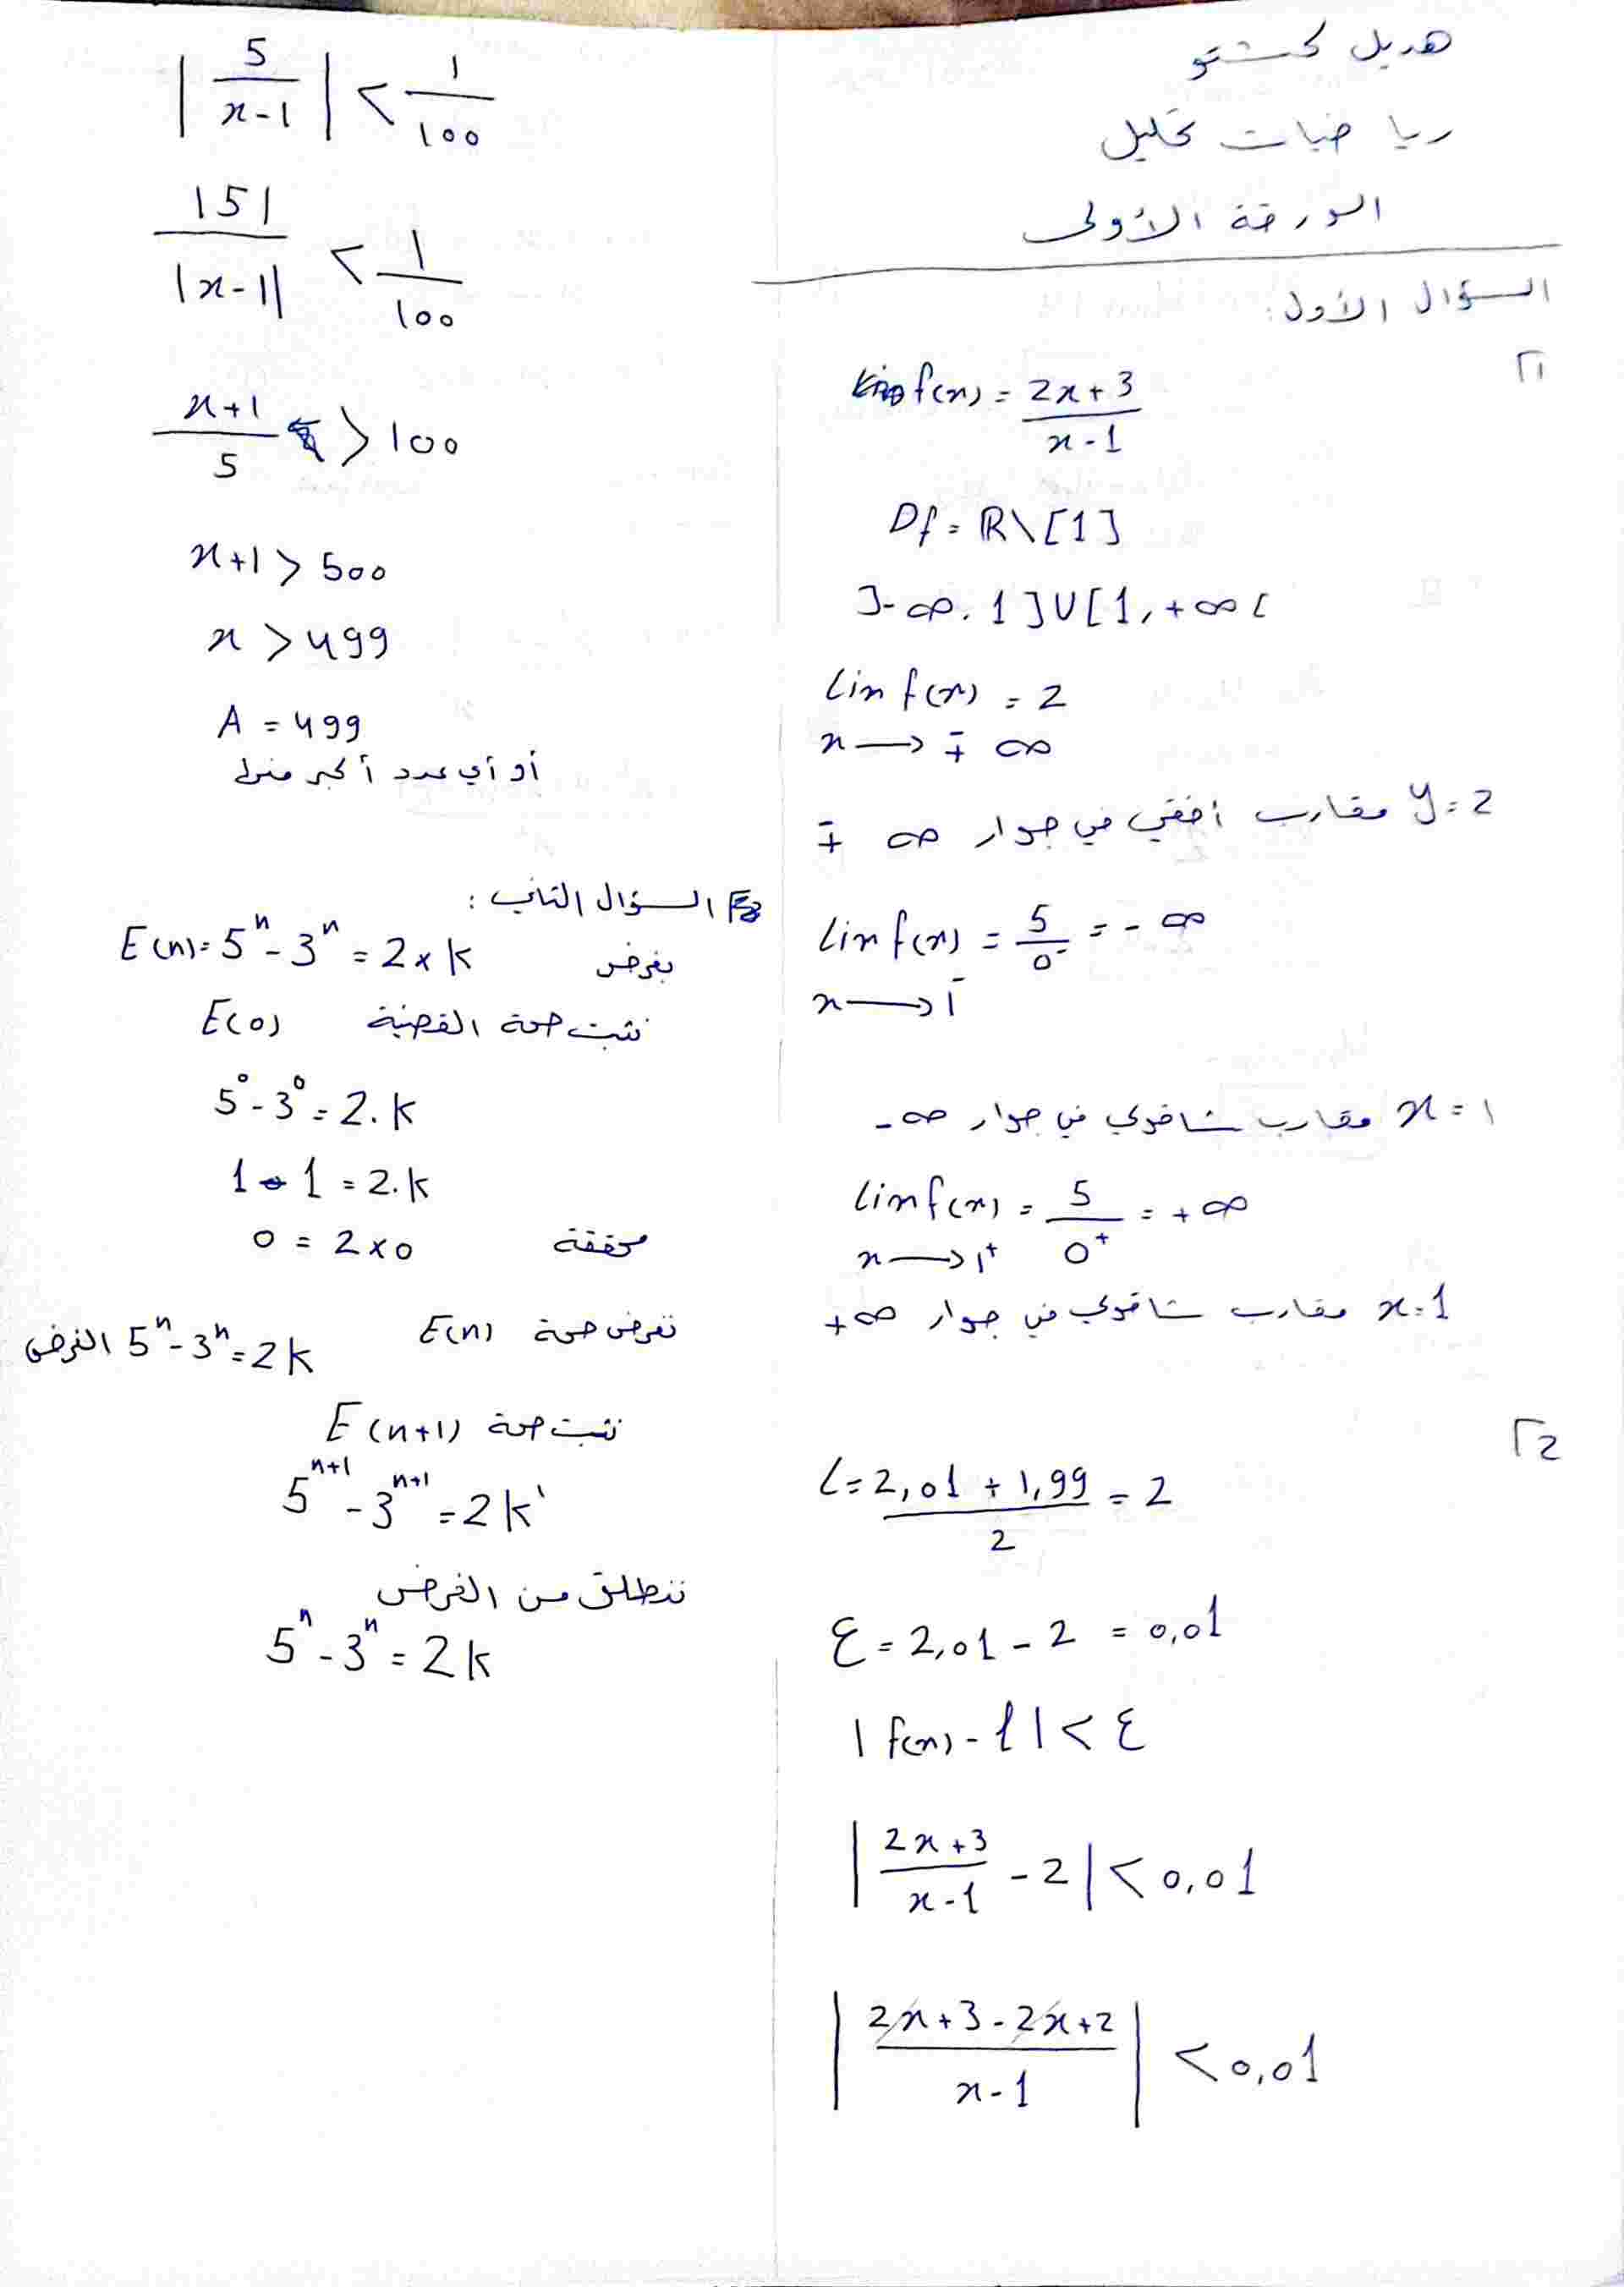 هديل كشتو
رياضيات تحليل
الورقة الأولى
السؤال الأول:
1
f(x) = (2x+3)/(x-1)
Df = ℝ\[1]
]-∞, 1]∪[1, +∞[
lim f(x) = 2
x → ∓∞
y = 2 مقارب أفقي في جوار ∓∞
lim f(x) = 5/0⁻ = -∞
x → 1⁻
x = 1 مقارب شاقولي في جوار -∞
lim f(x) = 5/0⁺ = +∞
x → 1⁺
x = 1 مقارب شاقولي في جوار +∞
2
L = (2,01 + 1,99)/2 = 2
ε = 2,01 - 2 = 0,01
|f(x) - ℓ| < ε
|(2x+3)/(x-1) - 2| < 0,01
|(2x+3-2x+2)/(x-1)| < 0,01
|5/(x-1)| < 1/100
|5|/|x-1| < 1/100
(x+1)/5 > 100
x+1 > 500
x > 499
A = 499
أو أي عدد أكبر منه
السؤال الثاني:
بفرض E(n) = 5ⁿ - 3ⁿ = 2×k
نثبت صحة القضية E(0)
5⁰ - 3⁰ = 2.k
1 - 1 = 2.k
0 = 2×0 محققة
نفرض صحة E(n) 5ⁿ - 3ⁿ = 2k الفرض
نثبت صحة E(n+1)
5ⁿ⁺¹ - 3ⁿ⁺¹ = 2k'
ننطلق من الفرض
5ⁿ - 3ⁿ = 2k